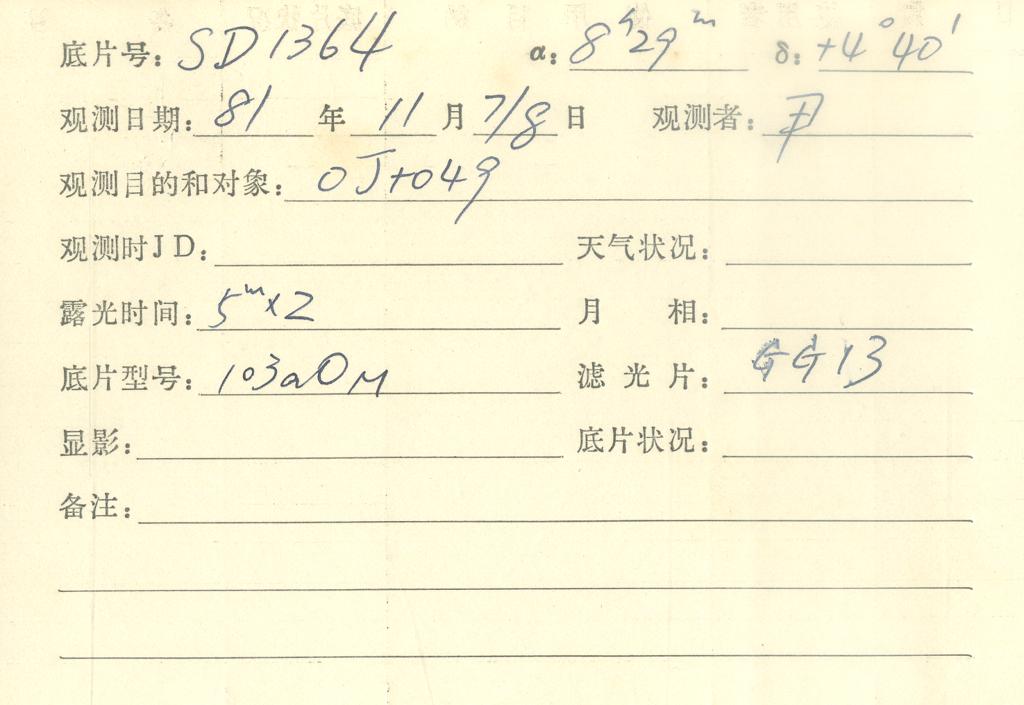 底片号: SD1364 α: 8ʰ29ᵐ δ: +4°40′
观测日期: 81 年 11 月 7/8 日 观测者:
观测目的和对象: OJ+049
观测时JD: 天气状况:
露光时间: 5ᵐ×2 月 相:
底片型号: 103aO M 滤光片: GG13
显影: 底片状况:
备注: